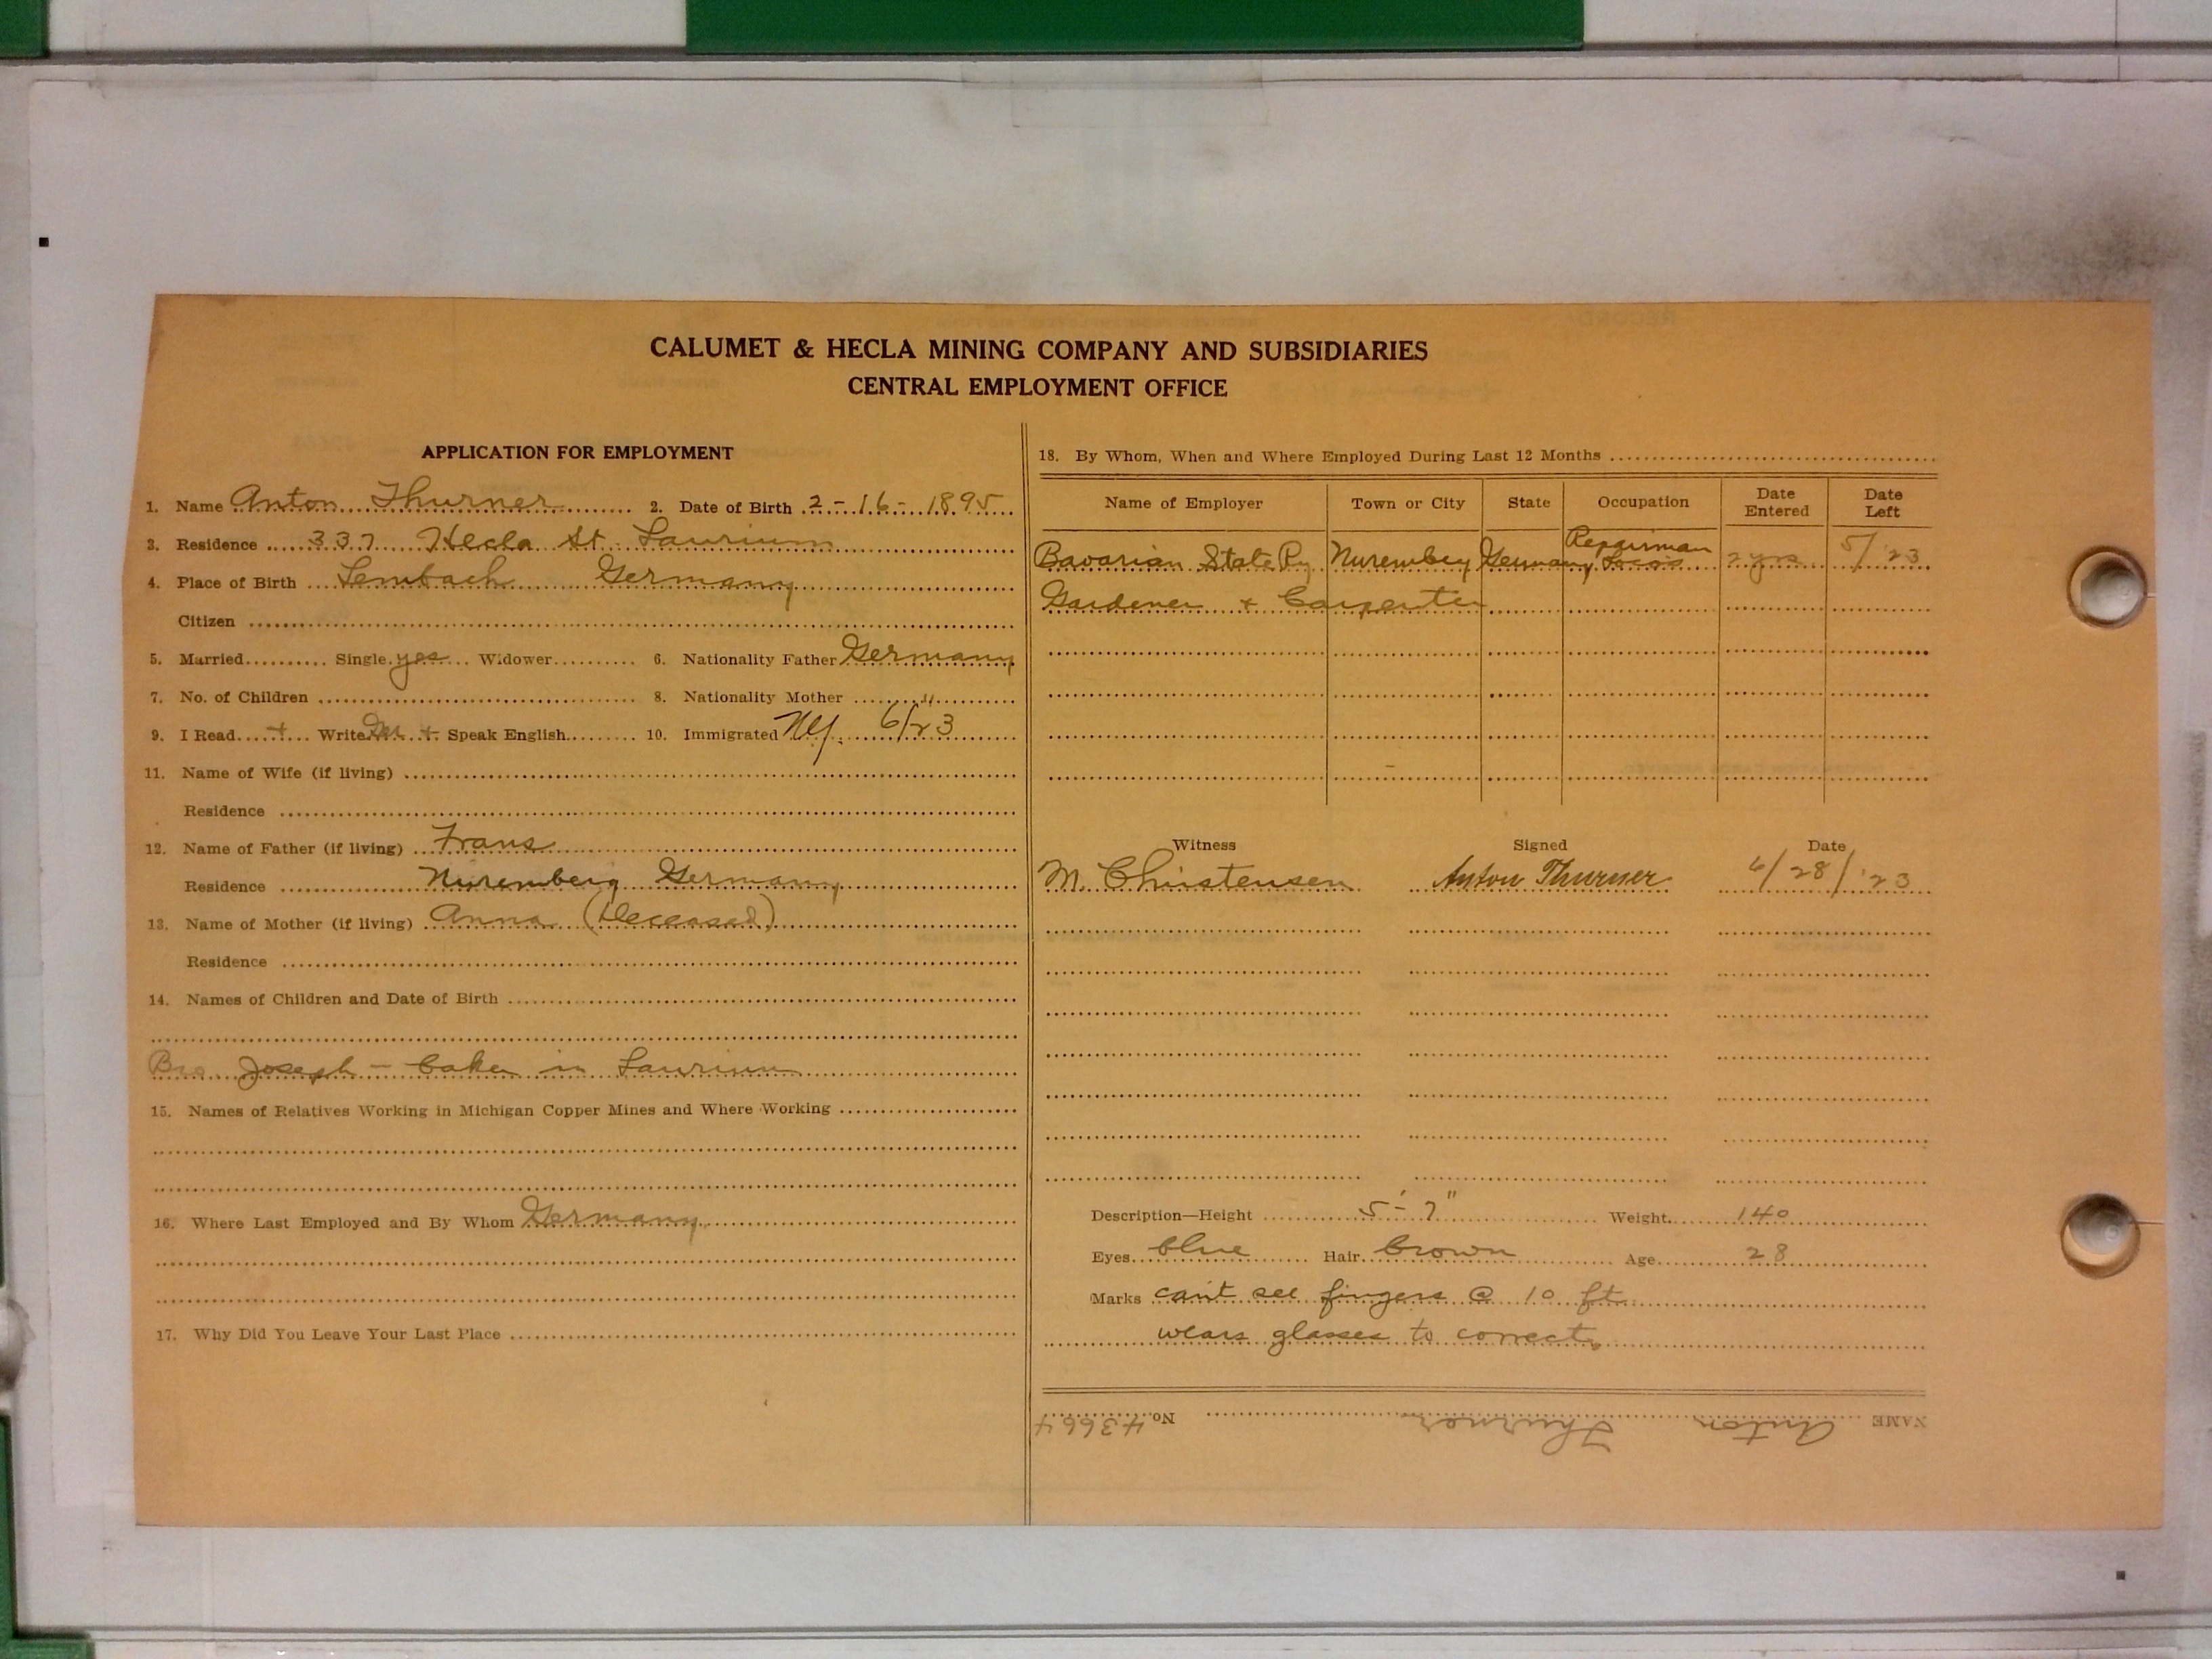 CALUMET & HECLA MINING COMPANY AND SUBSIDIARIES
CENTRAL EMPLOYMENT OFFICE
APPLICATION FOR EMPLOYMENT
1. Name Anton Thurner 2. Date of Birth 2-16-1895
3. Residence 337 Hecla St. Laurium
4. Place of Birth Lembach Germany
Citizen
5. Married Single yes Widower 6. Nationality Father Germany
7. No. of Children 8. Nationality Mother "
9. I Read + Write Ger + Speak English 10. Immigrated NY. 6/23
11. Name of Wife (if living)
Residence
12. Name of Father (if living) Frans
Residence Nuremberg Germany
13. Name of Mother (if living) Anna (Deceased)
Residence
14. Names of Children and Date of Birth
Bro Joseph - baker in Laurium
15. Names of Relatives Working in Michigan Copper Mines and Where Working
16. Where Last Employed and By Whom Germany
17. Why Did You Leave Your Last Place
18. By Whom, When and Where Employed During Last 12 Months
Name of Employer Town or City State Occupation Date Entered Date Left
Bavarian State Ry. Nuremberg Germany Repairman Loco's 2 yrs 5/'23
Gardener + Carpenter
Witness Signed Date
M. Christensen Anton Thurner 6/28/'23
Description—Height 5'-7" Weight 140
Eyes blue Hair brown Age 28
Marks can't see fingers @ 10 ft.
wears glasses to correct.
NAME Anton Thurner No. 43664